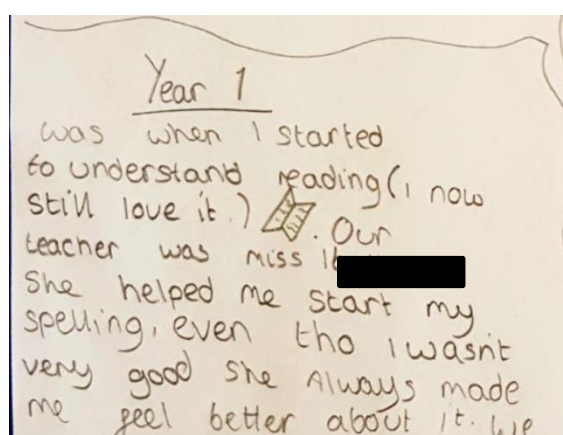 Year 1
was when I started
to understand reading (I now
still love it.) . Our
teacher was miss
She helped me start my
spelling, even tho I wasn't
very good she Always made
me feel better about it. we